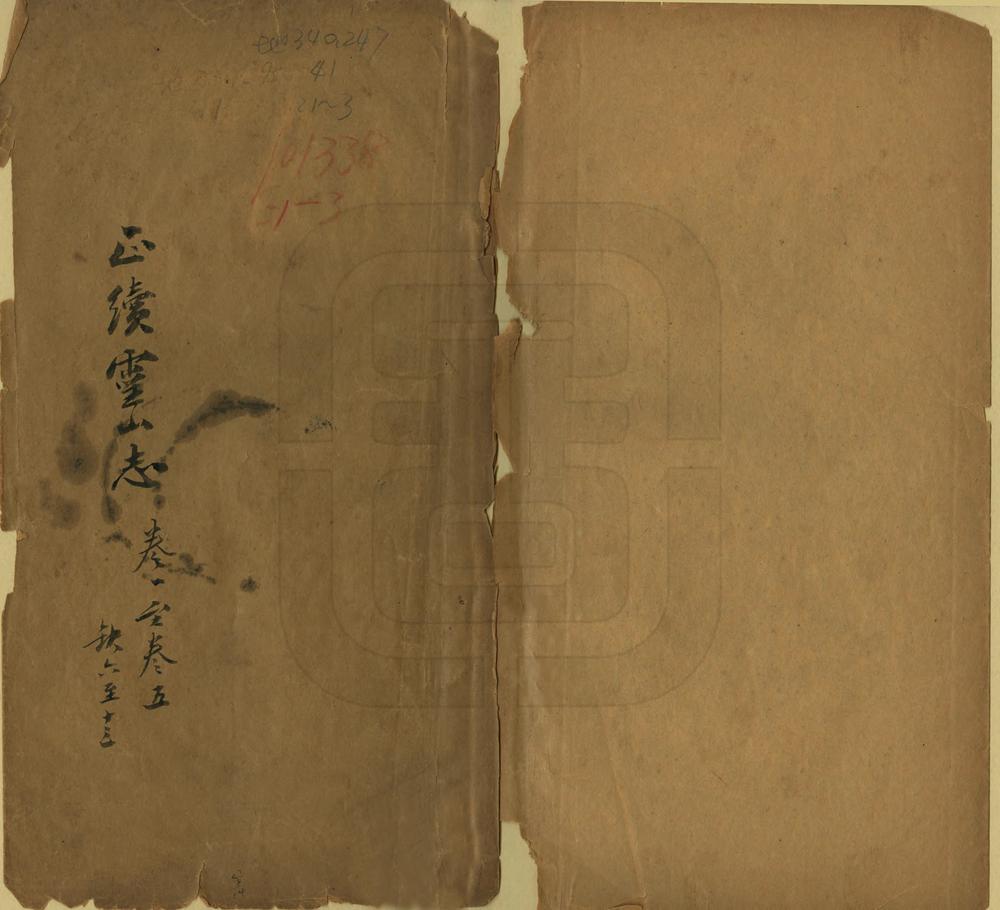 地340.247
41
21-3
101338
21-3
正續靈山志
卷一至卷五
缺六至十三